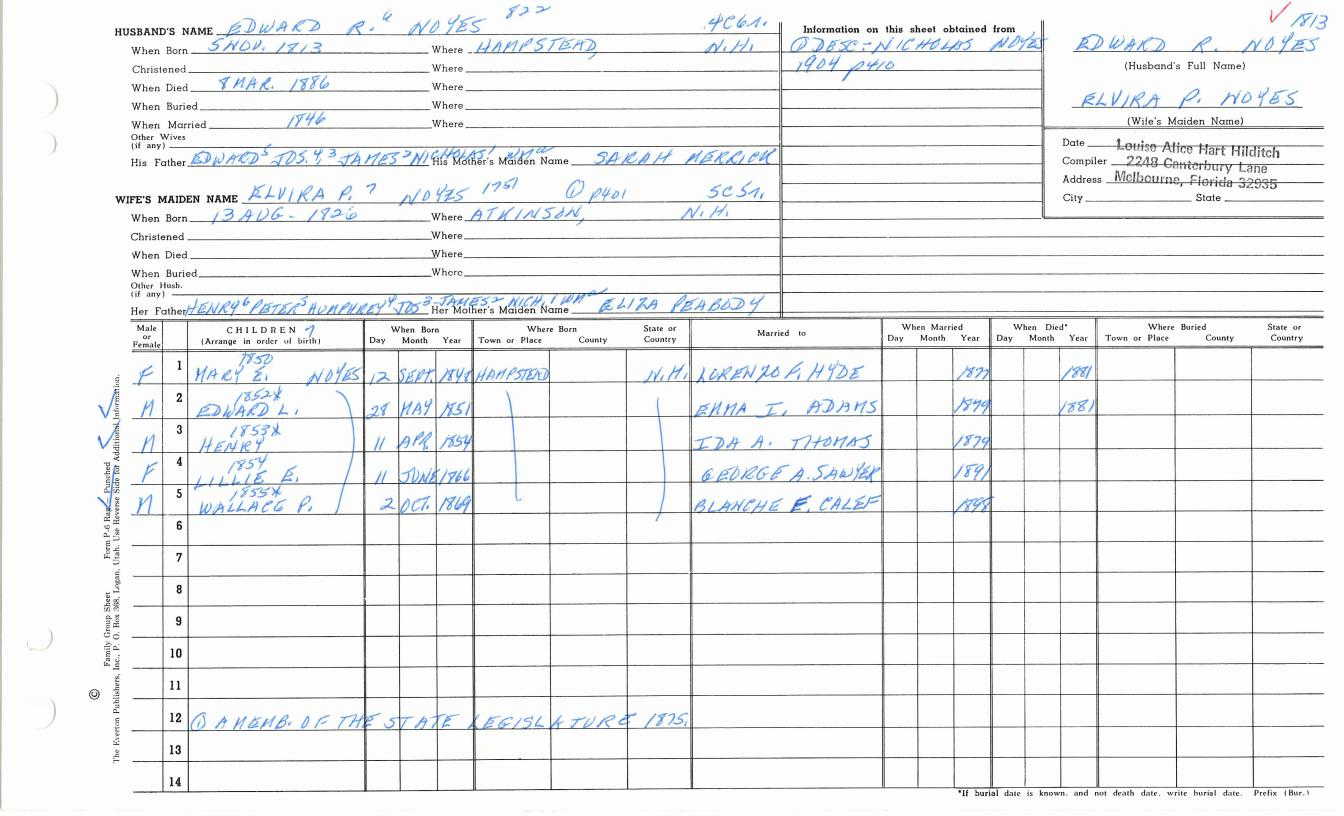 ✓ 1813
HUSBAND'S NAME EDWARD R. 6 NOYES 822 4C6
When Born 5 NOV. 1813 Where HAMPSTEAD, N.H.
Christened Where
When Died 8 MAR. 1886 Where
When Buried Where
When Married 1846 Where
Other Wives
(if any)
His Father EDWARD5 JOS.4,3 JAMES2 NICHOLAS1 WMa His Mother's Maiden Name SARAH MERRICK
WIFE'S MAIDEN NAME ELVIRA P. 7 NOYES 1751 ① P401 5C5
When Born 13 AUG. 1826 Where ATKINSON, N.H.
Christened Where
When Died Where
When Buried Where
Other Hush.
(if any)
Her Father HENRY6 PETER5 HUMPHREY4 JOS3 JAMES2 NICH.1 WMa Her Mother's Maiden Name ELIZA PEABODY
Information on this sheet obtained from
① DESC - NICHOLAS NOYES
1904 p410
EDWARD R. NOYES
(Husband's Full Name)
ELVIRA P. NOYES
(Wife's Maiden Name)
Date Louise Alice Hart Hilditch
Compiler 2248 Canterbury Lane
Address Melbourne, Florida 32935
City State
Male or Female CHILDREN 7 (Arrange in order of birth) When Born Day Month Year Where Born Town or Place County State or Country Married to When Married Day Month Year When Died* Day Month Year Where Buried Town or Place County State or Country
1850
F 1 MARY E. NOYES 12 SEPT. 1848 HAMPSTEAD N.H. LORENZO F. HYDE 1877 1881
1852*
M 2 EDWARD L. 28 MAY 1851 EMMA I. ADAMS 1879 1881
1853*
M 3 HENRY 11 APR. 1854 IDA A. THOMAS 1879
1854
F 4 LILLIE E. 11 JUNE 1866 GEORGE A. SAWYER 1891
1855*
M 5 WALLACE P. 2 OCT. 1869 BLANCHE E. CALEF 1898
6
7
8
9
10
11
12 ① A MEMB. OF THE STATE LEGISLATURE 1875.
13
14
*If burial date is known, and not death date, write burial date. Prefix (Bur.)
Family Group Sheet Form P-6 Punched
© The Everton Publishers, Inc., P. O. Box 368, Logan, Utah. Use Reverse Side for Additional Information.